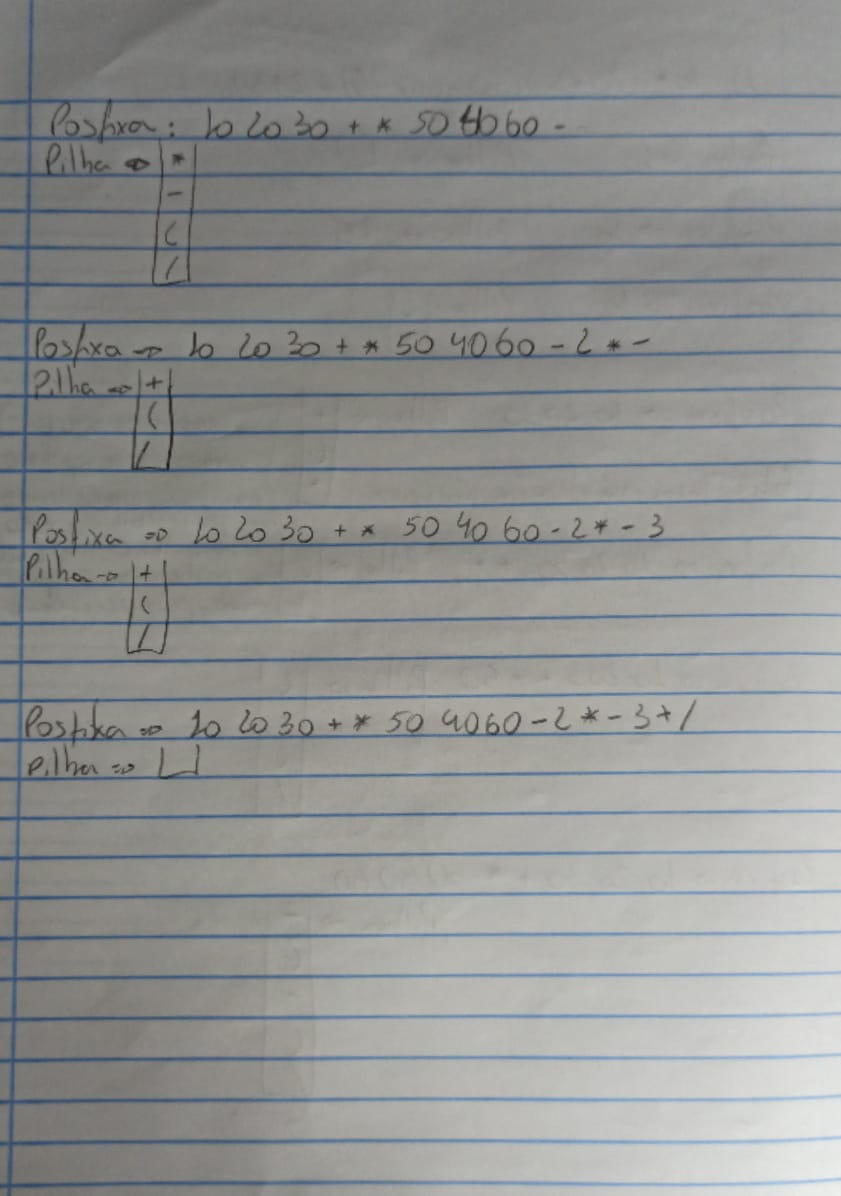 Posfixa: 10 20 30 + * 50 40 60 -
Pilha => | * |
| - |
| ( |
| / |
Posfixa -> 10 20 30 + * 50 40 60 - 2 * -
Pilha => | + |
| ( |
| / |
Posfixa => 10 20 30 + * 50 40 60 - 2 * - 3
Pilha -> | + |
| ( |
| / |
Posfixa => 10 20 30 + * 50 40 60 - 2 * - 3 + /
Pilha => |_|